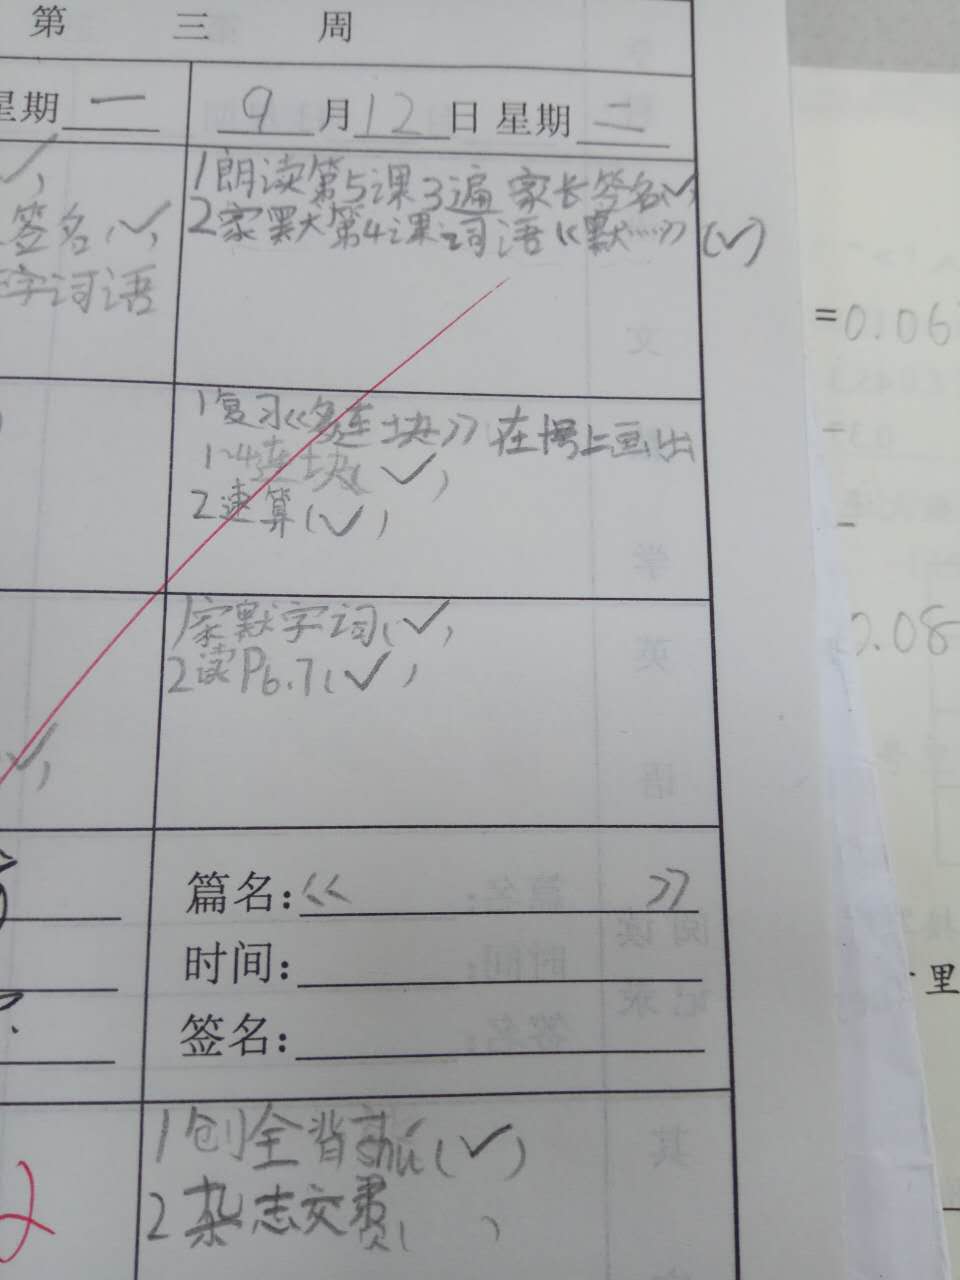 第 三 周
星期 一
9月12日 星期 二
签名(✓)
字词语
1朗读第5课3遍 家长签名(✓)
2家默第4课词语《默……》(✓)
1复习《多连块》在书上画出
1~4连块(✓)
2速算(✓)
1家默字词(✓)
2读P6.7(✓)
篇名:《 》
时间:
签名:
2杂志交费( )
=0.06
0.08
里